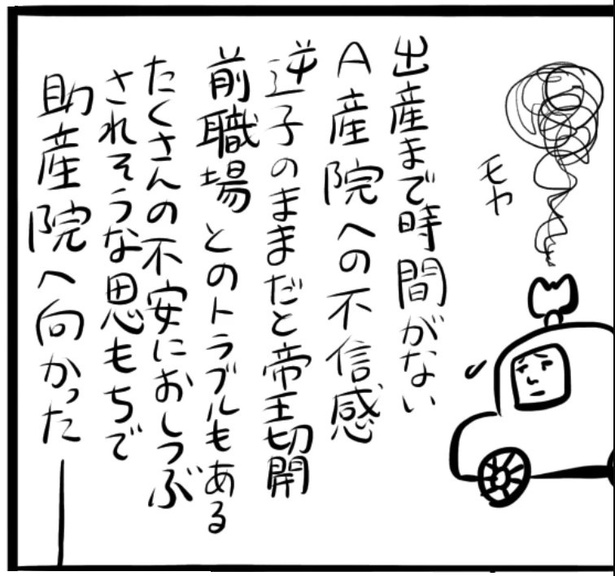 出産まで時間がない
A産院への不信感
逆子のままだと帝王切開
前職場とのトラブルもある
たくさんの不安におしつぶ
されそうな思もちで
助産院へ向かった――
モヤ